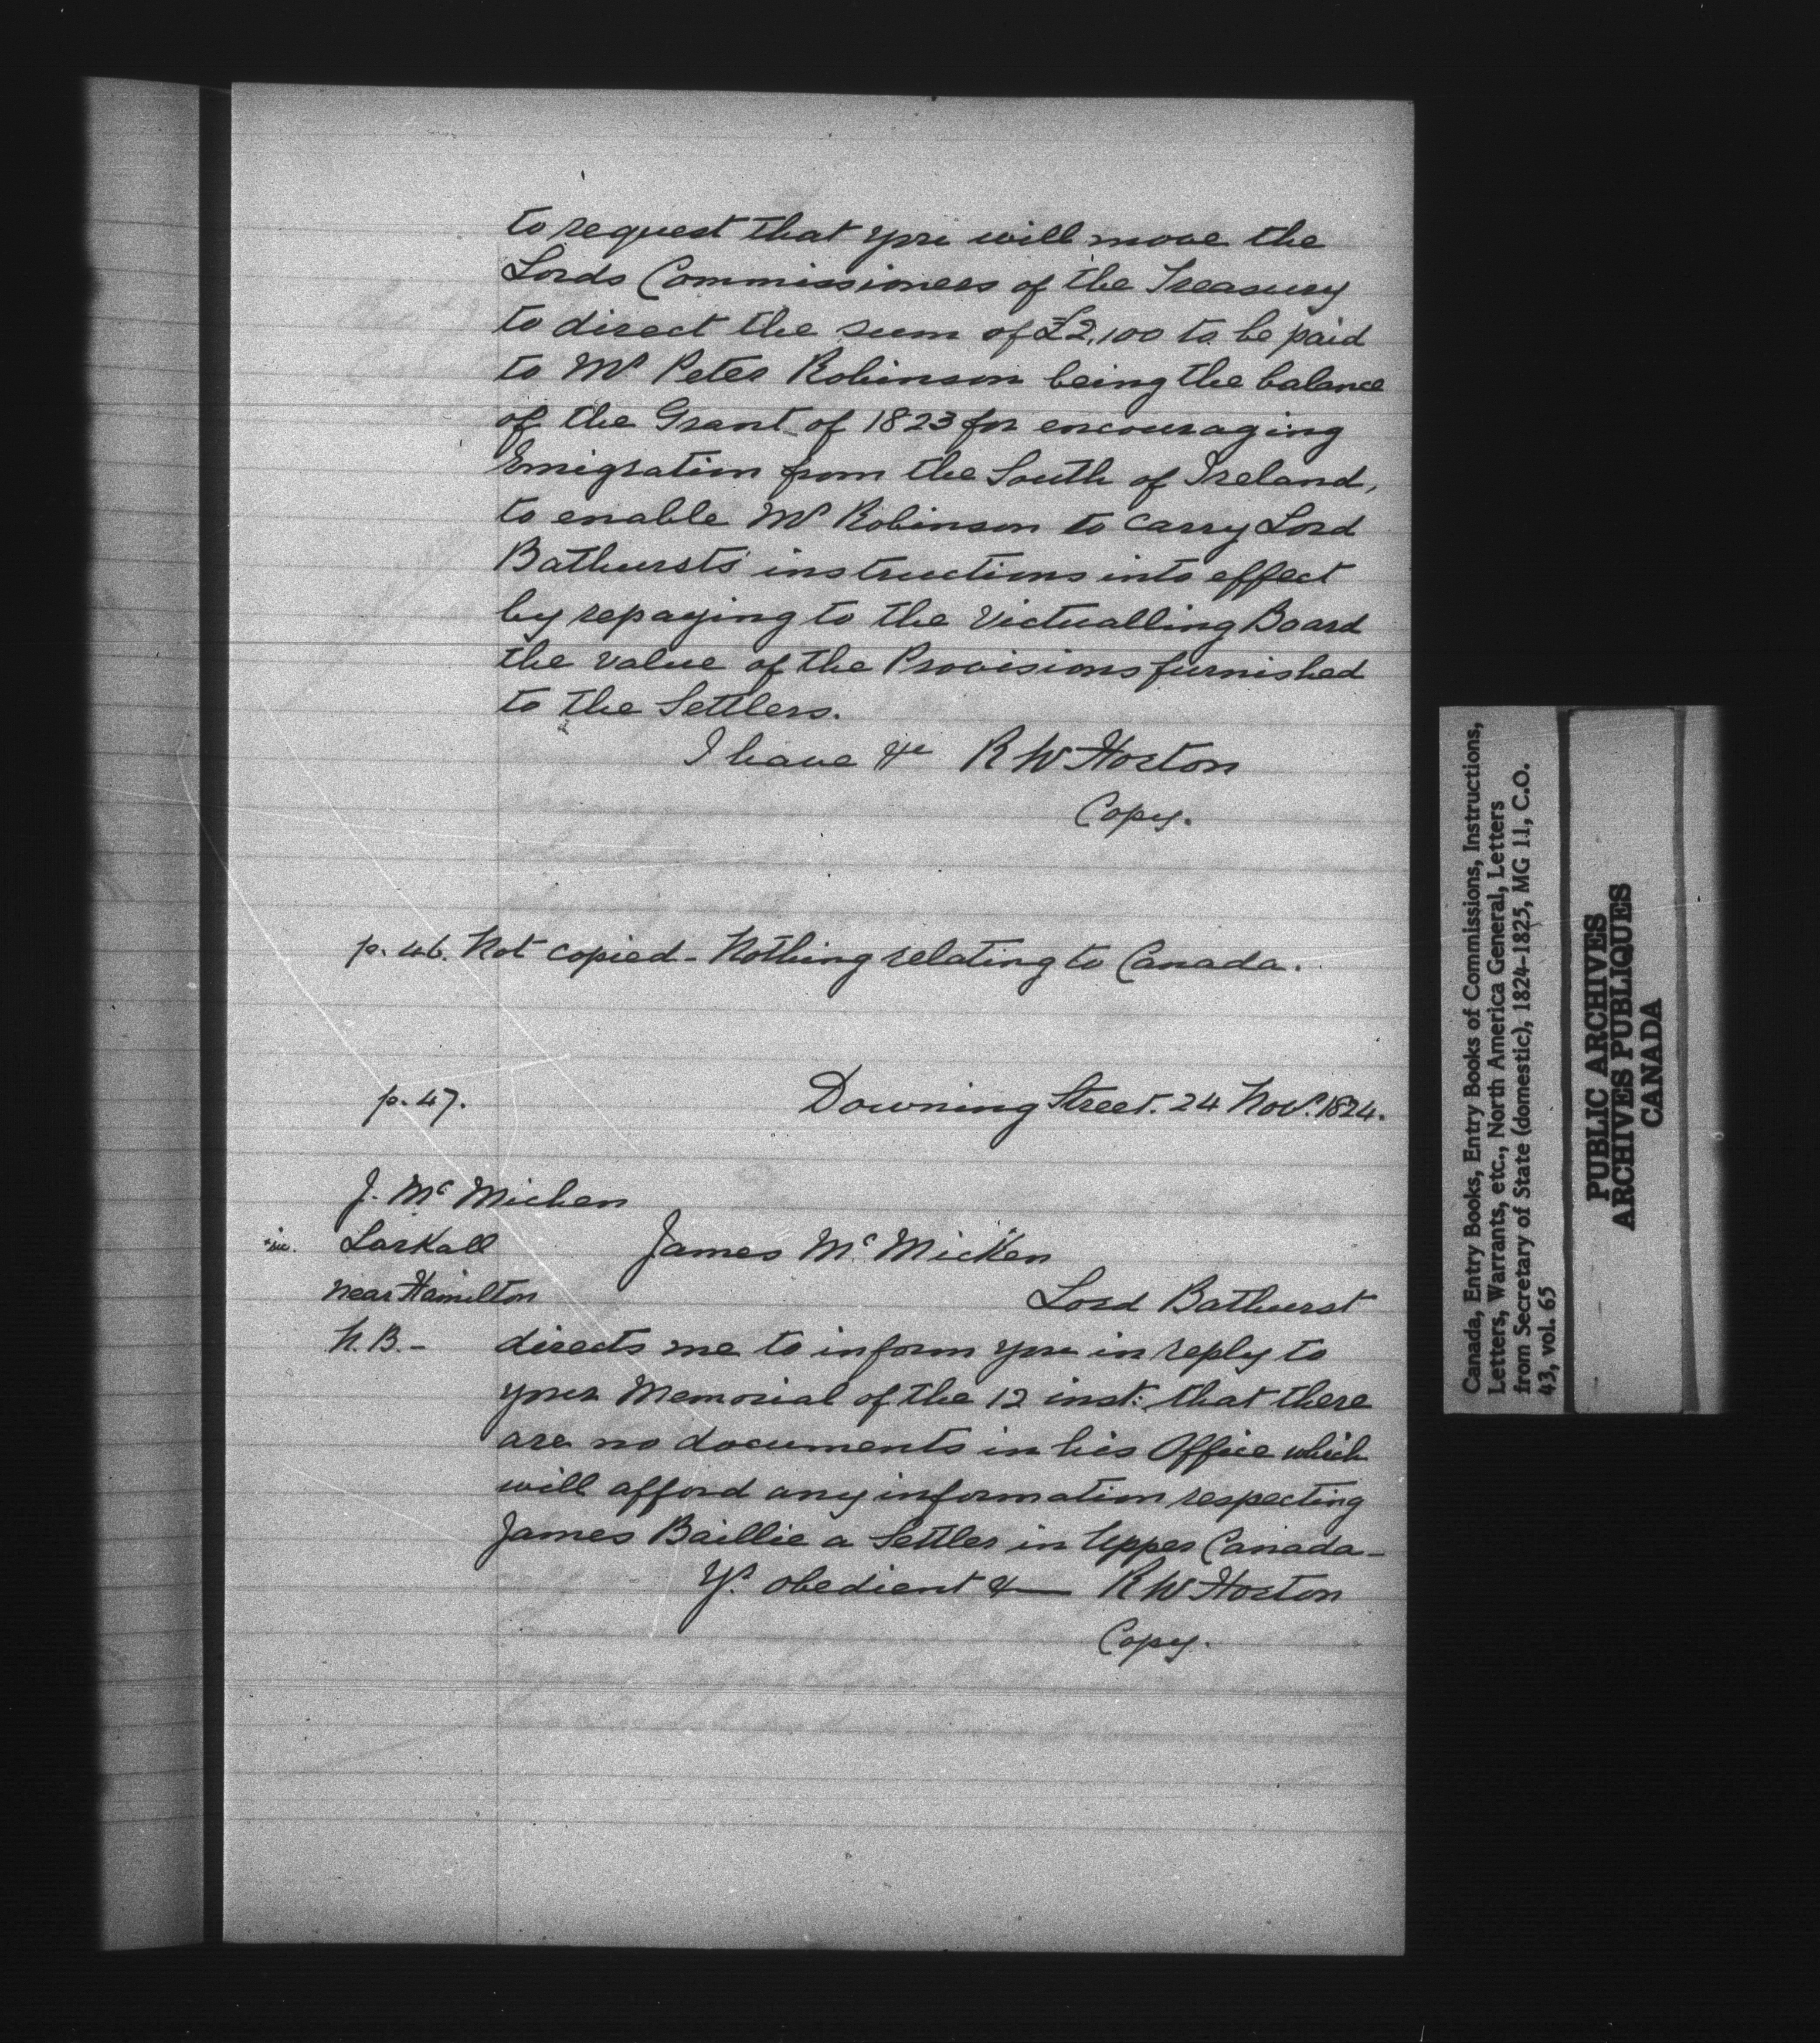 to request that you will move the
Lords Commissioners of the Treasury
to direct the sum of £2,100 to be paid
to Mr Peter Robinson being the balance
of the Grant of 1823 for encouraging
Emigration from the South of Ireland,
to enable Mr Robinson to carry Lord
Bathursts' instructions into effect
by repaying to the Victualling Board
the value of the Provisions furnished
to the Settlers.
I have &c R W Horton
Copy.
p. 46. Not copied - Nothing relating to Canada.
p. 47.
Downing Street. 24 Novr. 1824.
J. Mc Micken
*sic. Larkall
near Hamilton
N.B. -
James Mc Micken
Lord Bathurst
directs me to inform you in reply to
your Memorial of the 12 inst: that there
are no documents in his Office which
will afford any information respecting
James Baillie a Settler in Upper Canada -
Yr. obedient &— R W Horton
Copy.
Canada, Entry Books, Entry Books of Commissions, Instructions,
Letters, Warrants, etc., North America General, Letters
from Secretary of State (domestic), 1824-1825, MG 11, C.O.
43, vol. 65
PUBLIC ARCHIVES
ARCHIVES PUBLIQUES
CANADA